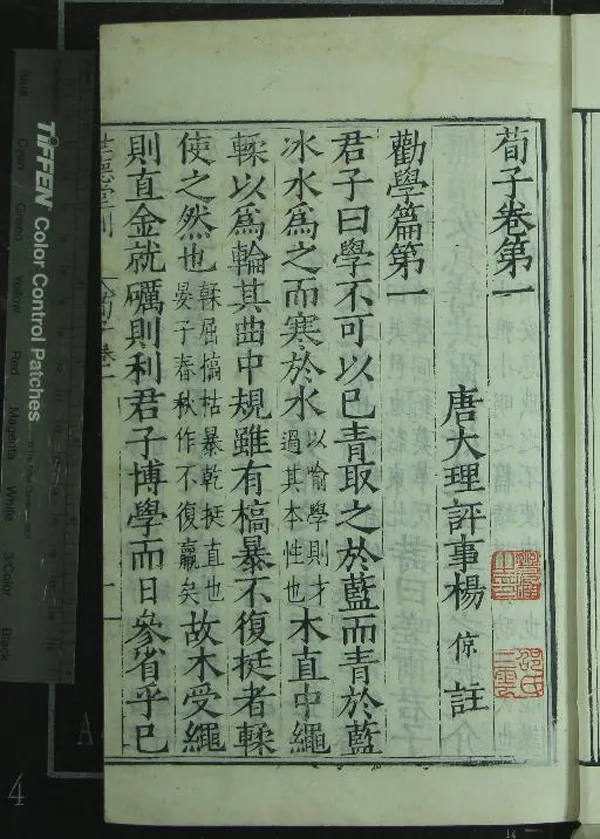 荀子卷第一
唐大理評事楊倞註
勸學篇第一
君子曰學不可以已青取之於藍而青於藍
冰水爲之而寒於水以喻學則才過其本性也木直中繩
輮以爲輪其曲中規雖有槁暴不復挺者輮
使之然也輮屈槁枯暴乾挺直也晏子春秋作不復贏矣故木受繩
則直金就礪則利君子博學而日參省乎已
世德堂刊
荀子卷一
一
TIFFEN Color Control Patches
Blue
Cyan
Green
Yellow
Red
Magenta
White
3/Color
Black
A
4
14